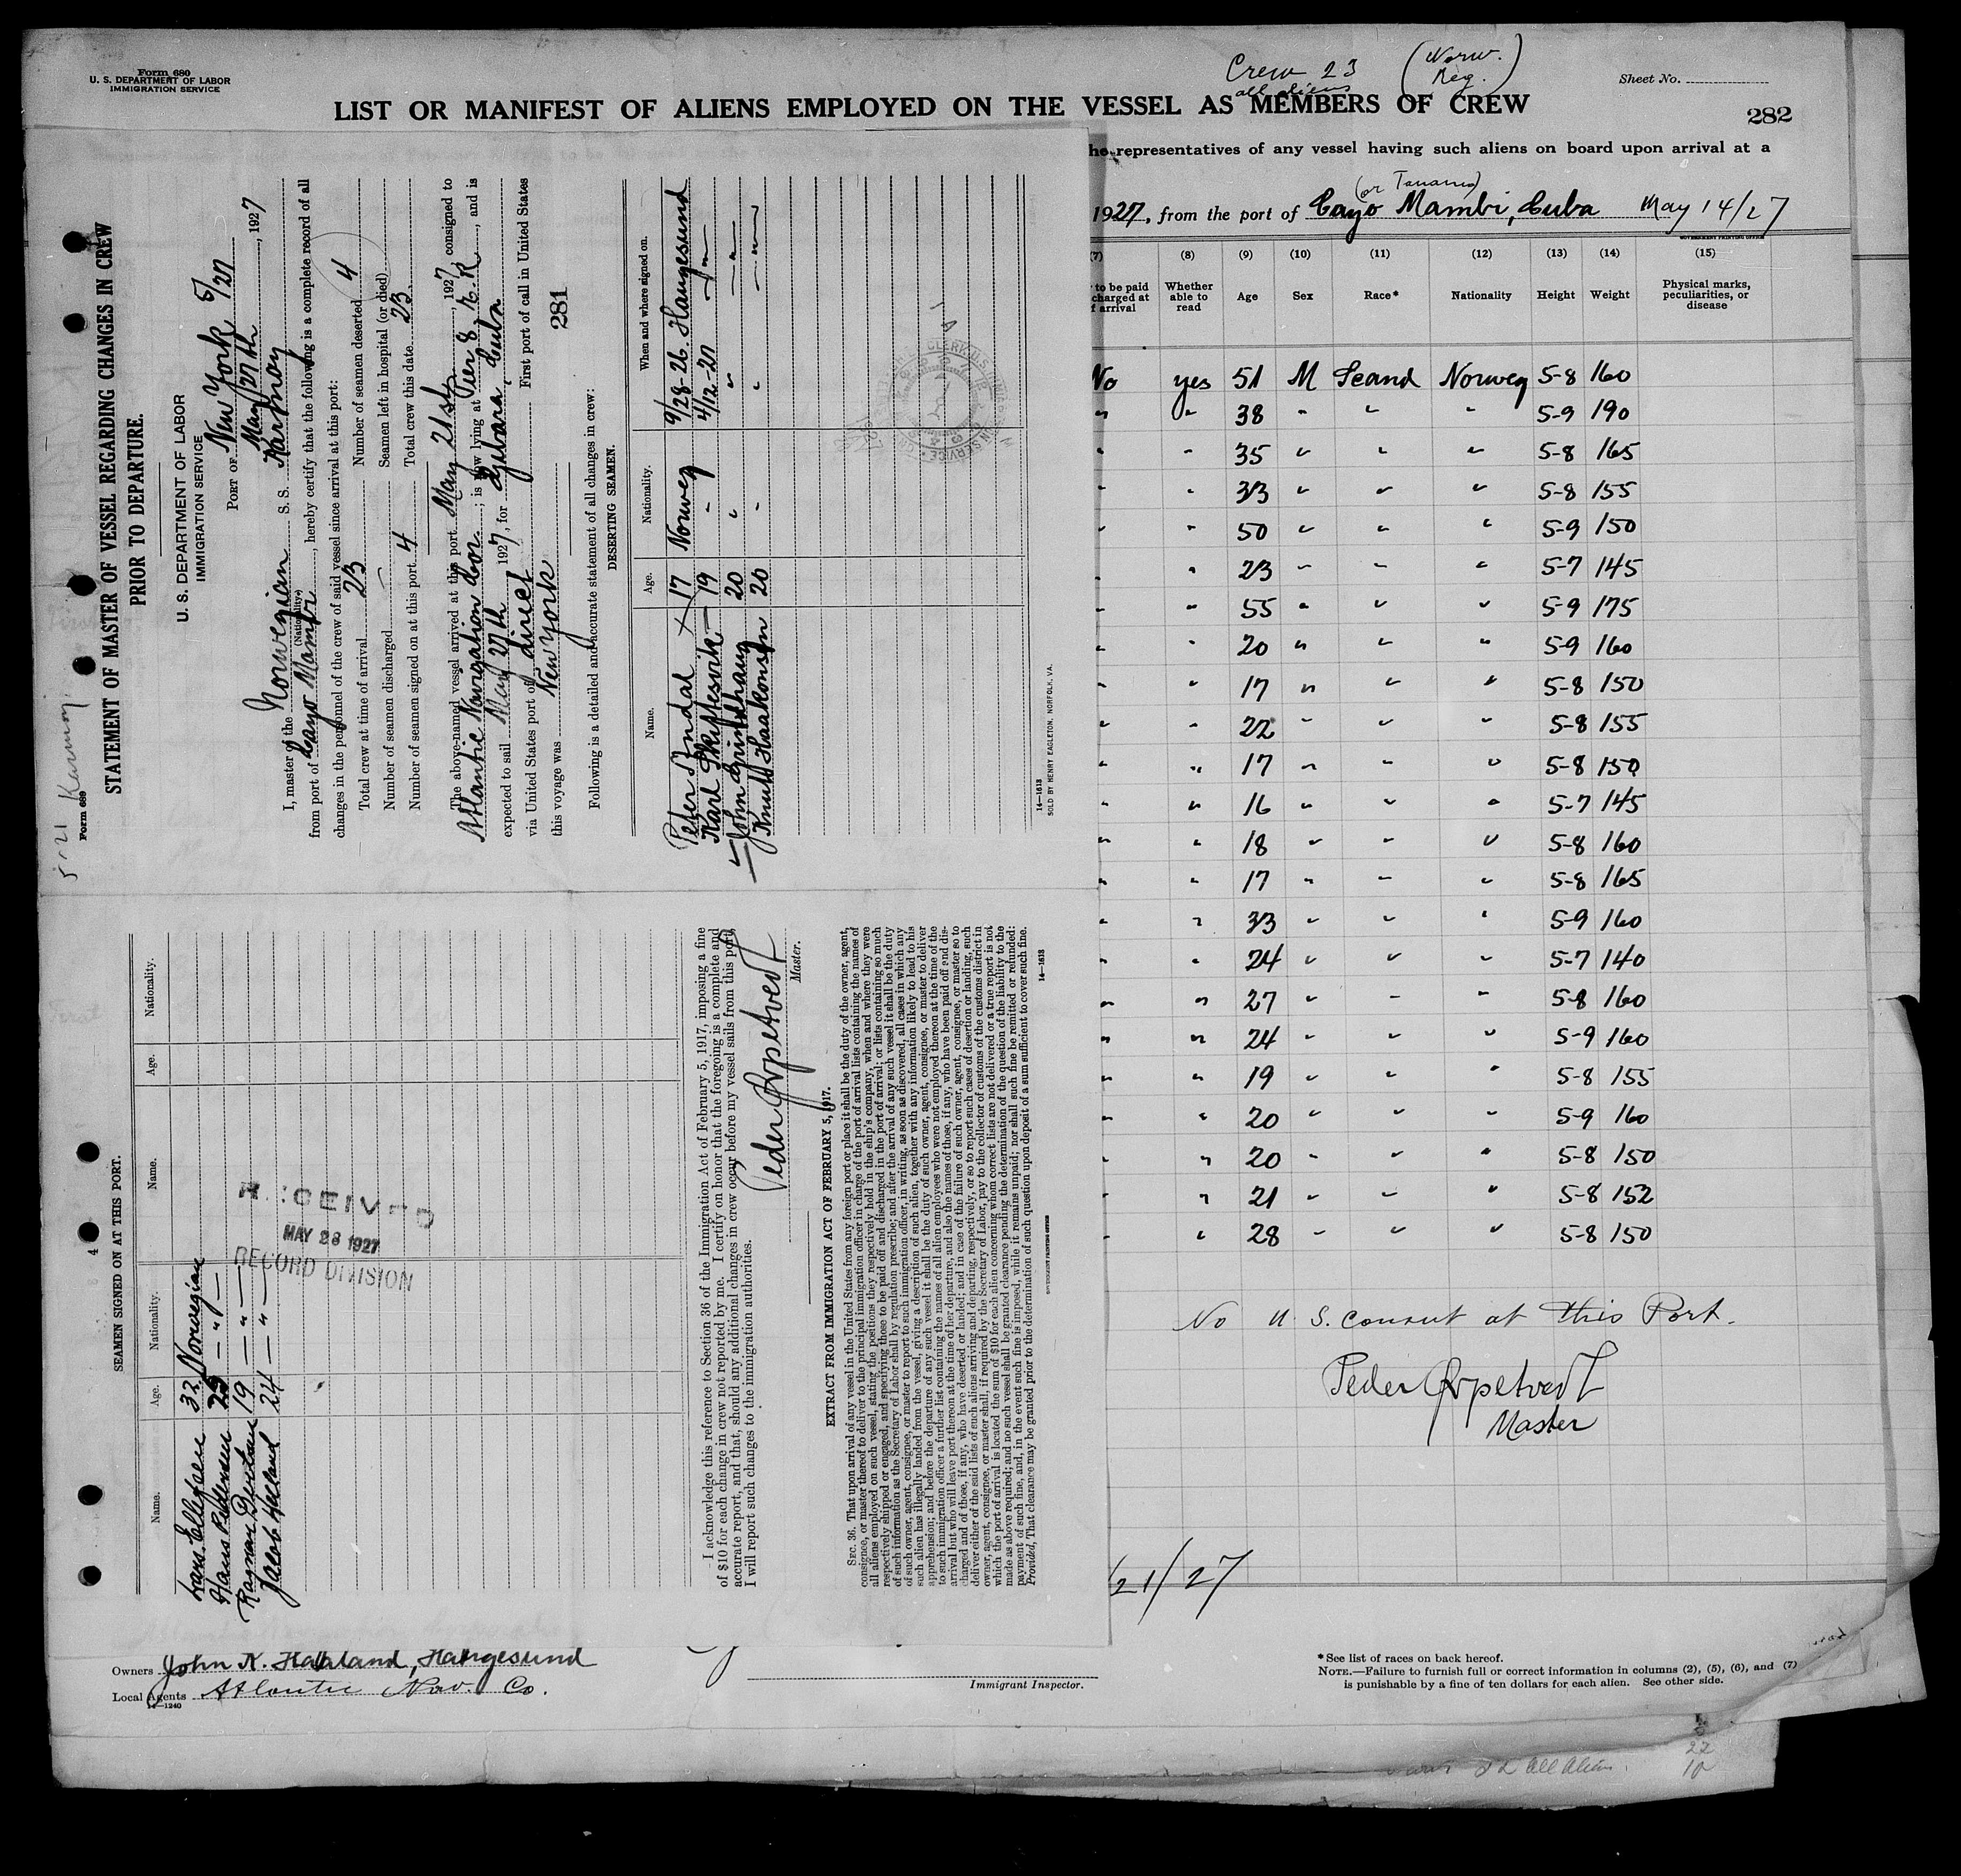 Form 680
U. S. DEPARTMENT OF LABOR
IMMIGRATION SERVICE
Crew 23 (Norw. Reg.)
all aliens
Sheet No.
LIST OR MANIFEST OF ALIENS EMPLOYED ON THE VESSEL AS MEMBERS OF CREW
282
he representatives of any vessel having such aliens on board upon arrival at a
(or Tanamo)
1927, from the port of Cayo Mambi, Cuba May 14/27
GOVERNMENT PRINTING OFFICE
(7) (8) (9) (10) (11) (12) (13) (14) (15)
to be paid charged at arrival Whether able to read Age Sex Race* Nationality Height Weight Physical marks, peculiarities, or disease
No yes 51 M Scand Norweg 5-8 160
" " 38 " " " 5-9 190
" " 35 " " " 5-8 165
" " 33 " " " 5-8 155
" " 50 " " " 5-9 150
" " 23 " " " 5-7 145
" " 55 " " " 5-9 175
" " 20 " " " 5-9 160
" " 17 " " " 5-8 150
" " 22 " " " 5-8 155
" " 17 " " " 5-8 150
" " 16 " " " 5-7 145
" " 18 " " " 5-8 160
" " 17 " " " 5-8 165
" " 33 " " " 5-9 160
" " 24 " " " 5-7 140
" " 27 " " " 5-8 160
" " 24 " " " 5-9 160
" " 19 " " " 5-8 155
" " 20 " " " 5-9 160
" " 20 " " " 5-8 150
" " 21 " " " 5-8 152
" " 28 " " " 5-8 150
No U. S. Consul at this Port.
Peder
Master
21/27
*See list of races on back hereof.
NOTE.—Failure to furnish full or correct information in columns (2), (5), (6), and (7)
is punishable by a fine of ten dollars for each alien. See other side.
Immigrant Inspector.
Owners John K. Haaland, Haugesund
Local Agents Atlantic Nav. Co.
14—1240
all Aliens.
5/21 Karmoy
Form 689
STATEMENT OF MASTER OF VESSEL REGARDING CHANGES IN CREW
PRIOR TO DEPARTURE.
U. S. DEPARTMENT OF LABOR
IMMIGRATION SERVICE
PORT OF New York 5/27
May 27th, 1927
I, master of the Norwegian S. S. Karmoy
(Nationality.)
from port of Cayo Mambi, hereby certify that the following is a complete record of all
changes in the personnel of the crew of said vessel since arrival at this port:
Total crew at time of arrival 23 Number of seamen deserted 4
Number of seamen discharged — Seamen left in hospital (or died)
Number of seamen signed on at this port 4 Total crew this date 23
The above-named vessel arrived at this port May 21st, 1927, consigned to
Atlantic Navigation Cor.; is now lying at Pier 8, E. R., and is
expected to sail May 27th 1927, for Gibara, Cuba
via United States port of direct First port of call in United States
this voyage was New York 281
Following is a detailed and accurate statement of all changes in crew:
DESERTING SEAMEN.
Name. Age. Nationality. When and where signed on.
Peter Andal 17 Norweg 9/28-26. Haugesund
Karl Skiftesvik 19 " 4/12-27 "
John Grindhaug 20 " " "
Knut Haakonsen 20 " " "
14—1613
SOLD BY HENRY EAGLETON, NORFOLK, VA.
4
SEAMEN SIGNED ON AT THIS PORT.
Name. Age. Nationality. Name. Age. Nationality.
Lars Ellefsen 32 Norwegian
Hans Pedersen 25 — " —
Rasmus 19 — " —
Jacob Haaland 24 — " —
RECEIVED
MAY 28 1927
RECORD DIVISION
I acknowledge this reference to Section 36 of the Immigration Act of February 5, 1917, imposing a fine
of $10 for each change in crew not reported by me. I certify on honor that the foregoing is a complete and
accurate report, and that, should any additional changes in crew occur before my vessel sails from this port,
I will report such changes to the immigration authorities.
Peder
Master.
EXTRACT FROM IMMIGRATION ACT OF FEBRUARY 5, 1917.
SEC. 36. That upon arrival of any vessel in the United States from any foreign port or place it shall be the duty of the owner, agent,
consignee, or master thereof to deliver to the principal immigration officer in charge of the port of arrival lists containing the names of
all aliens employed on such vessel, stating the positions they respectively hold in the ship's company, when and where they were
respectively shipped or engaged, and specifying those to be paid off and discharged in the port of arrival; or lists containing so much
of such information as the Secretary of Labor shall by regulation prescribe; and after the arrival of any such vessel it shall be the duty
of such owner, agent, consignee, or master to report to such immigration officer, in writing, as soon as discovered, all cases in which any
such alien has illegally landed from the vessel, giving a description of such alien, together with any information likely to lead to his
apprehension; and before the departure of any such vessel it shall be the duty of such owner, agent, consignee, or master to deliver
to such immigration officer a further list containing the names of all alien employees who were not employed thereon at the time of the
arrival but who will leave port thereon at the time of her departure, and also the names of those, if any, who have been paid off and dis-
charged and of those, if any, who have deserted or landed; and in case of the failure of such owner, agent, consignee, or master so to
deliver either of the said lists of such aliens arriving and departing, respectively, or so to report such cases of desertion or landing, such
owner, agent, consignee, or master shall, if required by the Secretary of Labor, pay to the collector of customs of the customs district in
which the port of arrival is located the sum of $10 for each alien concerning whom correct lists are not delivered or a true report is not
made as above required; and no such vessel shall be granted clearance pending the determination of the question of the liability to the
payment of such fine, and, in the event such fine is imposed, while it remains unpaid; nor shall such fine be remitted or refunded:
Provided, That clearance may be granted prior to the determination of such question upon deposit of a sum sufficient to cover such fine.
14—1613